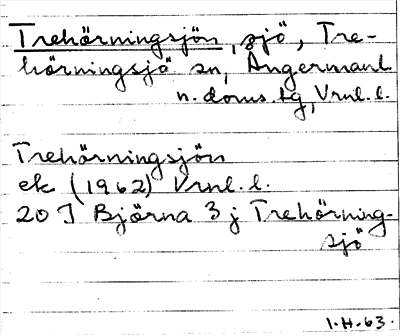 Trehörningsjön, sjö, Tre-
hörningsjö sn, Ångermanl.
n. doms. tg, Vrnl. l.
Trehörningsjön
ek (1962) Vrnl. l.
20 I Björna 3 j Trehörning-
sjö
1.H.63.